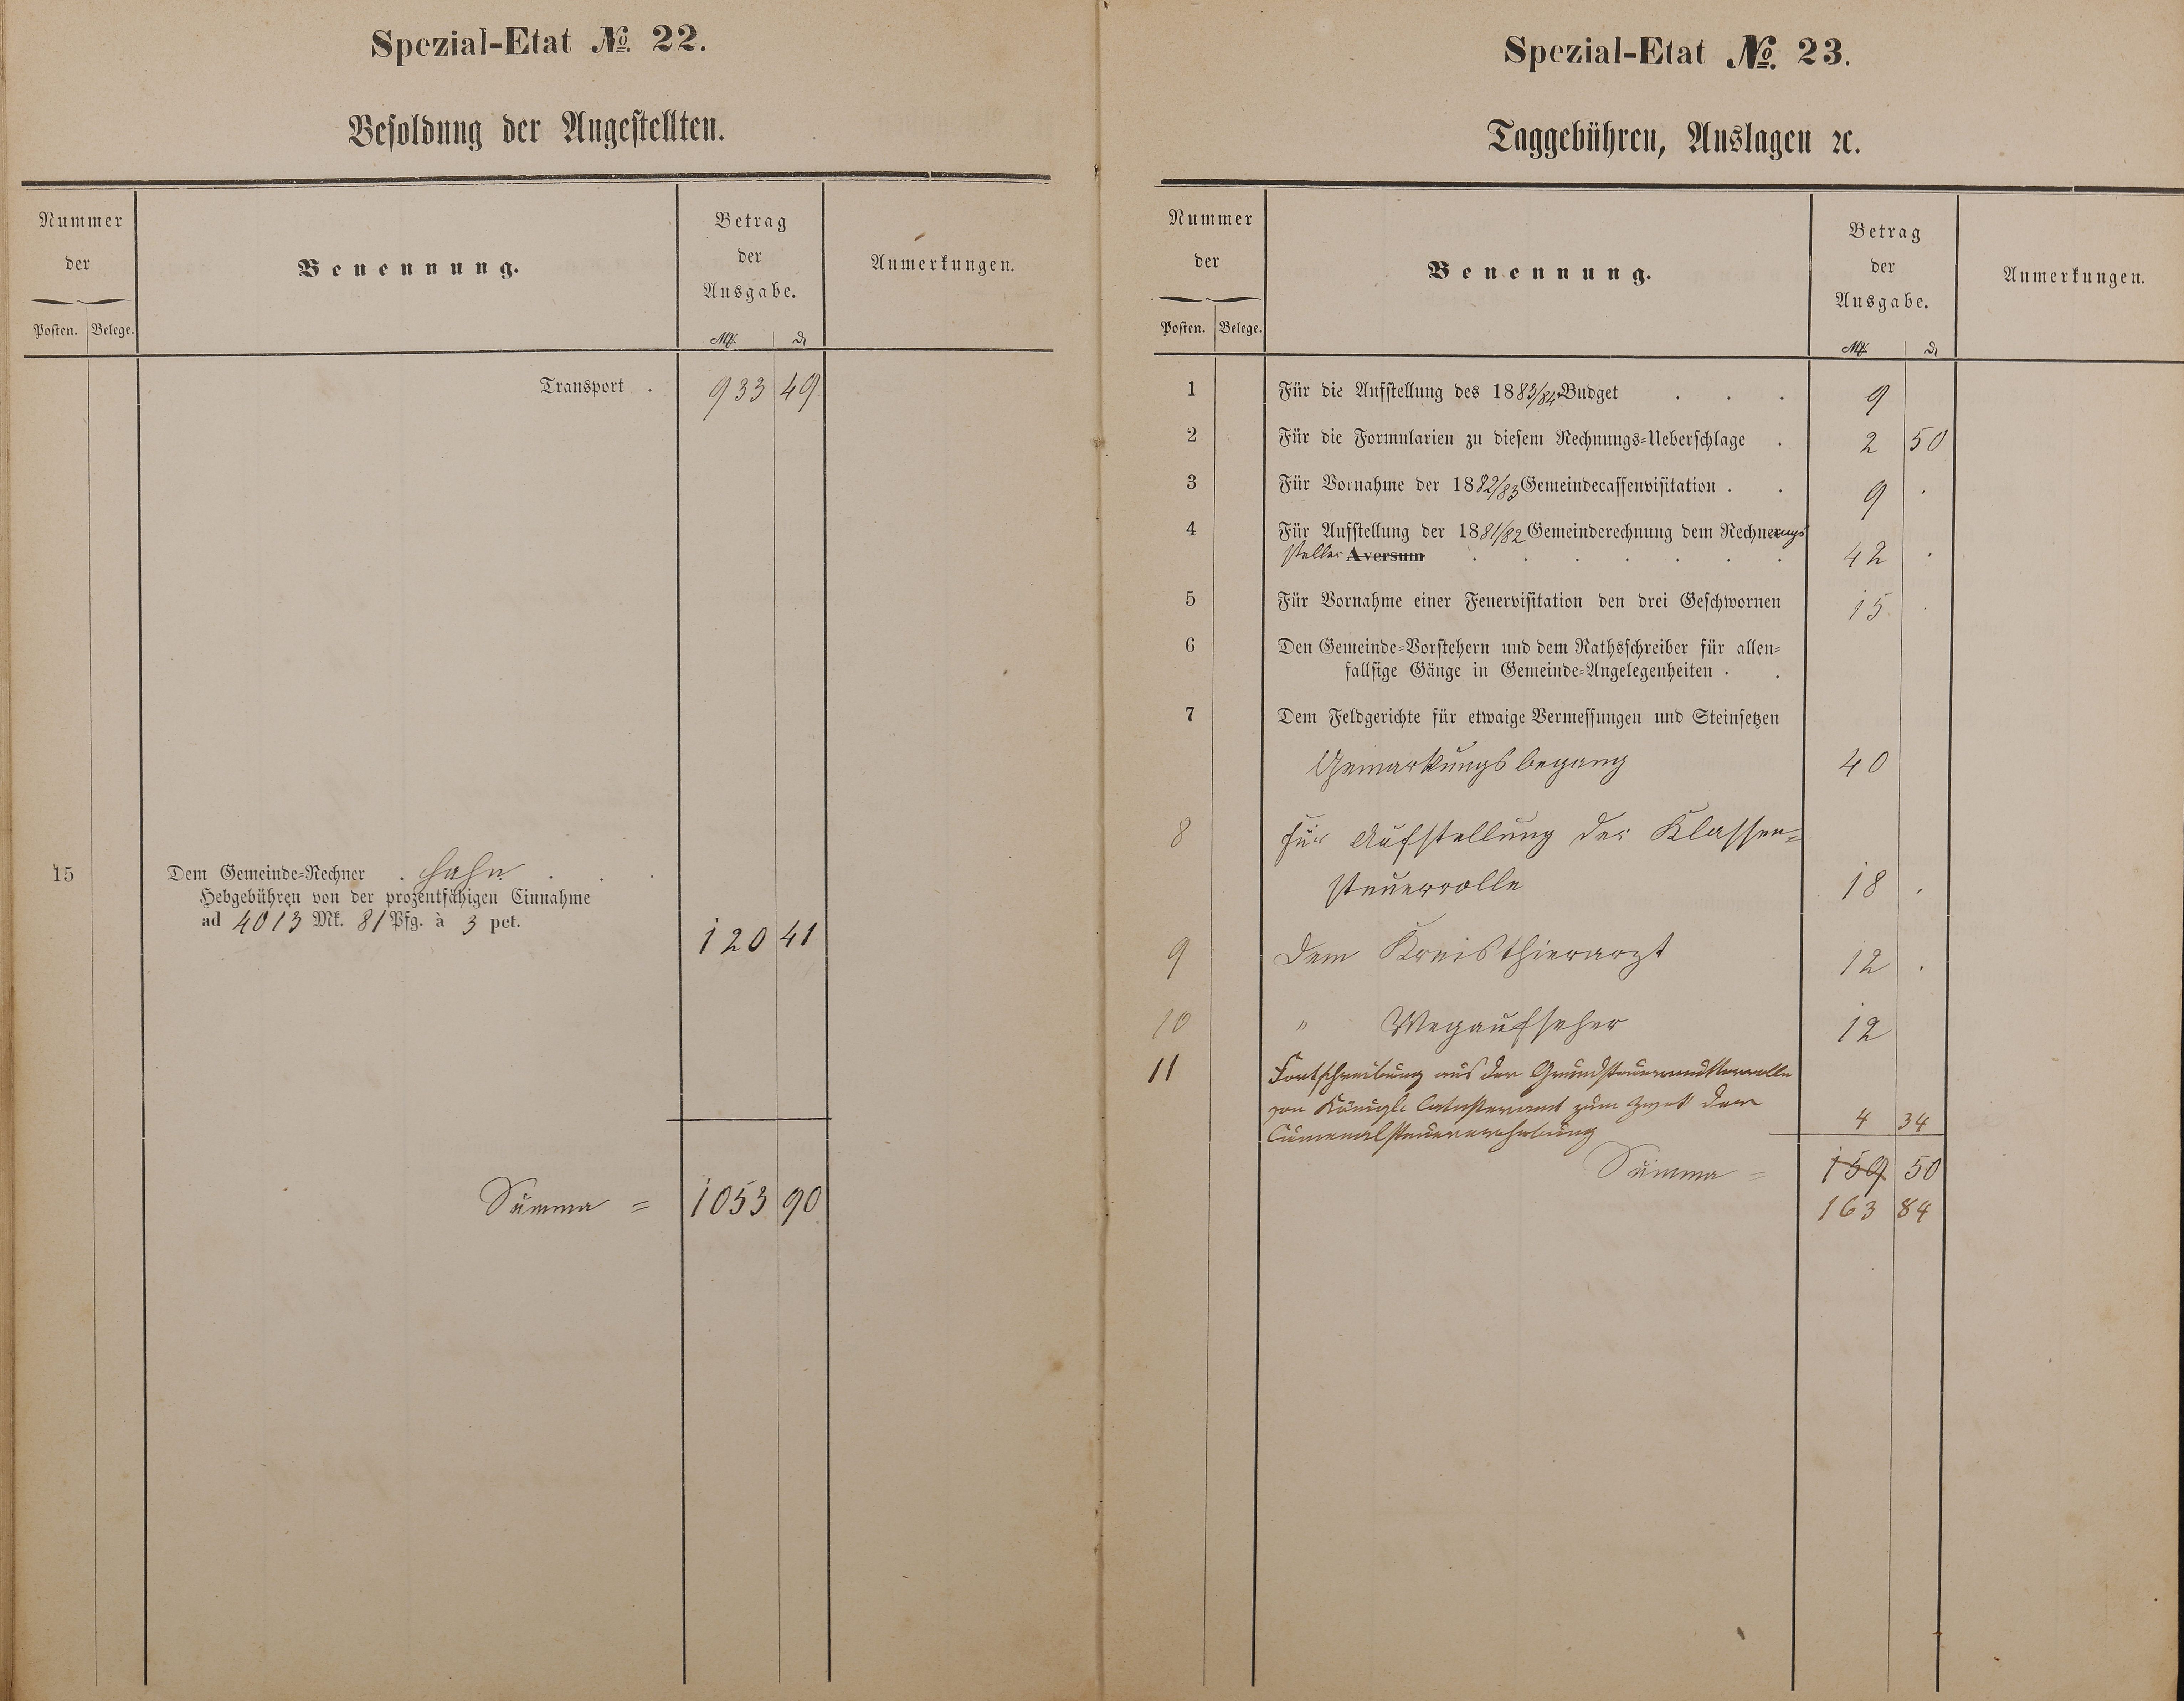 Spezial-Etat № 22.
Besoldung der Angestellten.
Nummer
der
Posten. Belege.
Benennung.
Betrag
der
Ausgabe.
Mk. ₰
Anmerkungen.
Transport . 933 49
15 Dem Gemeinde-Rechner . Hahn . . .
Hebgebühren von der prozentfähigen Einnahme
ad 4013 Mk. 81 Pfg. à 3 pct. 120 41
Summa = 1053 90
Spezial-Etat № 23.
Taggebühren, Auslagen ꝛc.
Nummer
der
Posten. Belege.
Benennung.
Betrag
der
Ausgabe.
Mk. ₰
Anmerkungen.
1 Für die Aufstellung des 1883/84 Budget . . . 9
2 Für die Formularien zu diesem Rechnungs-Ueberschlage . 2 50
3 Für Vornahme der 1882/83 Gemeindecassenvisitation . . 9 .
4 Für Aufstellung der 1881/82 Gemeinderechnung dem Rechnungs
steller Aversum . . . . . . . 42 .
5 Für Vornahme einer Feuervisitation den drei Geschwornen 15 .
6 Den Gemeinde-Vorstehern und dem Rathsschreiber für allen-
fallsige Gänge in Gemeinde-Angelegenheiten . .
7 Dem Feldgerichte für etwaige Vermessungen und Steinsetzen
Gemarkungsbegang 40
8 für Aufstellung der Klassen-
steuerrolle 18 .
9 Dem Kreisthierarzt 12 .
10 " Wegaufseher 12
11 Fortschreibung aus der Grundsteuermutterrolle
von Königl. Catasteramt zum Zweck der
steuererhebung 4 34
Summa = 159 50
163 84